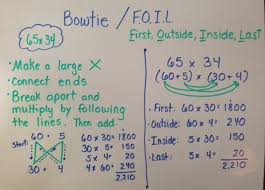 Bowtie / F.O.I.L.
65x34
First, Outside, Inside, Last
• Make a large X
• Connect ends
• Break apart and
multiply by following
the lines. Then add.
Start:
60 + 5
30 + 4
60 x 30 = 1800
30 x 5 = 150
5 x 4 = 20
4 x 60 = 240
2,210
65 x 34
(60+5) x (30+4)
• First: 60 x 30 = 1800
• Outside: 60 x 4 = 240
• Inside: 5 x 30 = 150
• Last: 5 x 4 = 20
2,210